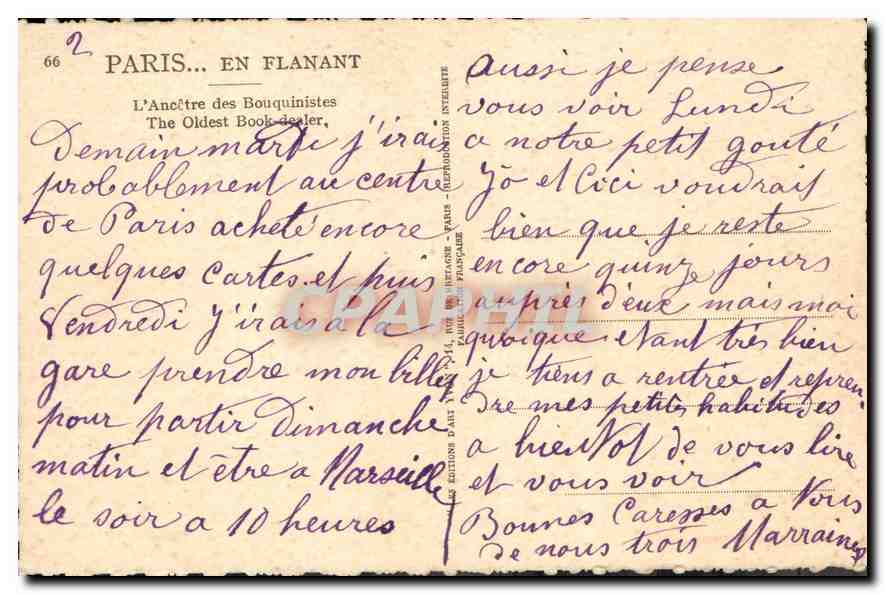 2
66 PARIS... EN FLANANT
L'Ancêtre des Bouquinistes
The Oldest Book-dealer,
Demain mardi j'irai
probablement au centre
de Paris acheté encore
quelques cartes et puis
Vendredi j'irais à la
gare prendre mon billet
pour partir Dimanche
matin et être a Marseille
le soir a 10 heures
LES ÉDITIONS D'ART YVON - 14, RUE DE BRETAGNE - PARIS - REPRODUCTION INTERDITE
FABRICATION FRANÇAISE
aussi je pense
vous voir Lundi
a notre petit gouté
Jö et Cici voudrais
bien que je reste
encore quinze jours
auprès d'eux mais moi
quoique etant très bien
je tiens a rentrée et repren-
dre mes petites habitudes
a bientot de vous lire
et vous voir
Bonnes Caresses a Vous
de nous trois Marraine
CPAPHIL